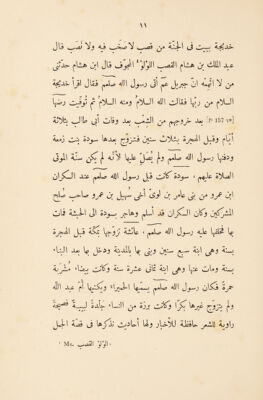 ١١
خديجة ببيت فى الجنّة من قصب لا صخب فيه ولا نصب قال
عبد الملك بن هشام القصب اللؤلؤ¹ المجوّف قال ابن هشام حدّثنى
من لا اتّهمُه انّ جبريل عم أتى رسول الله صلعم فقال اقرأ خديجة
السلام من ربّها فقالت الله السلامُ ومنه السلامُ ثم توفّيت رضها
[P 157 v] بعد خروجهم من الشِعْب بعد وفات أبى طالب بثلاثة
أيّام وقبل الهجرة بثلاث سنين فتزوّج بعدها سودة بنت زمعة
ودفنها رسول الله صلعم ولم يُصَلِّ عليها لأنّه لم يكن سنّة الموتى
الصلاة عليهم، سودة كانت قبل رسول الله صلعم عند السكران
ابن عمرو من بنى عامر بن لوىّ أخى سُهيل بن عمرو صاحب صلح
المشركين وكان السكران قد أسلم وهاجر بسودة الى الحبشة فمات
فخلف عليها رسول الله صلعم، عائشة تزوّجها بمكّة قبل الهجرة
بسنة وهى ابنة سبع سنين وبنى بها بالمدينة ودخل بها بعد البناء
بسنة ومات عنها وهى ابنة ثمانى عشرة سنة وكانت بيضاء مُشْرَبة
حمرة فكان رسول الله صلعم يسمّيها الحُميراء ويكنيها أمّ عبد الله
ولم يتزوّج غيرها بكرًا وكانت برزة من النساء جَلْدة لبيبة فصيحة
راوية للشعر حافظة للأخبار ولها أحاديث نذكرها فى قصّة الجمل
¹ Ms. الولو القصب.